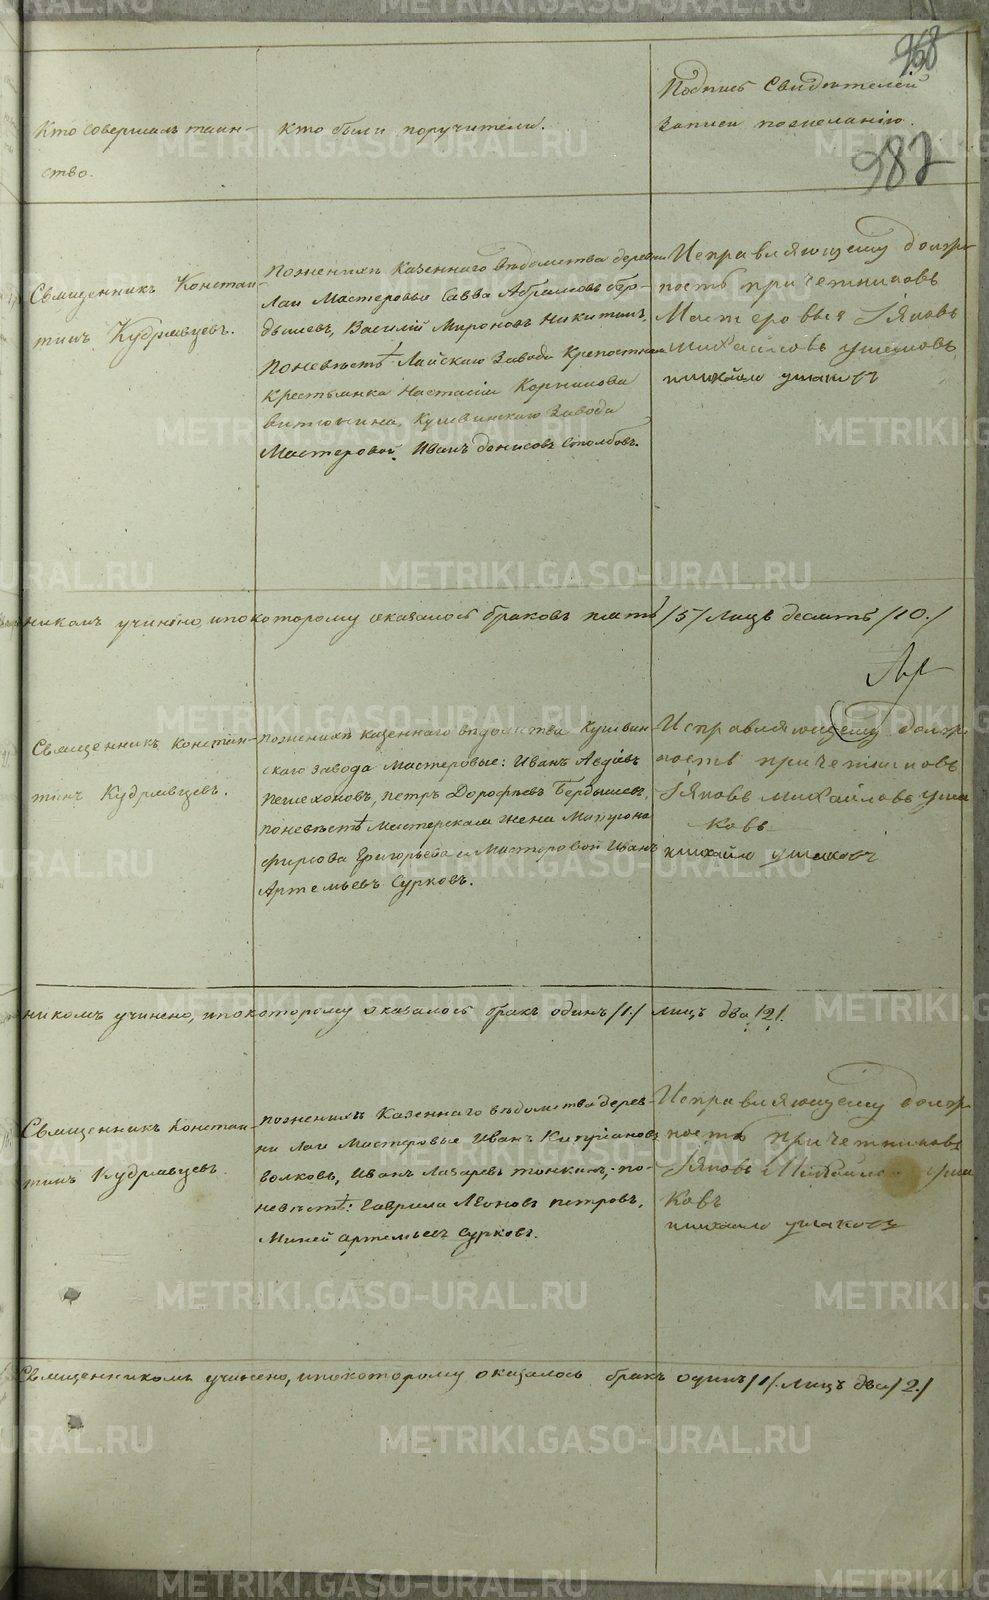 968
987
Кто совершалъ таин-
ство.
Кто были поручители.
Подпись Свидѣтелей
Записи пожеланію.
Священникъ Констан-
тинъ Кудрявцевъ.
поженихѣ Казеннаго вѣдомства деревни
Лаи Мастеровые Савва Абрамовъ бер-
дышевъ, Василій Мироновъ Никитинъ,
Поневѣстѣ Лайскаго Завода Крепостная
Крестьянка Настасія Корнилова
Кушвинскаго Завода
Мастеровой Иванъ Денисовъ Столбовъ.
Исправляющему долж-
ность причетниковъ
Мастеровыя Іяковъ
михайловъ ушаковъ
михайло ушаковъ
никомъ учинено, ипокоторому оказалось браковъ пять /5/ лицъ десять /10./
Священникъ констан-
тинъ Кудрявцевъ.
поженихѣ казеннаго вѣдомства Кушвин-
скаго завода мастеровые: Иванъ Авдіевъ
пешехоновъ, петръ Дорофѣевъ Бердышевъ,
поневѣстѣ мастерская жена
фирсова Григорьева и Мастеровой Иванъ
Артемьевъ Сурковъ.
Исправляющему долж-
ность причетниковъ
Іяковъ михайловъ уша
ковъ
михайло ушаковъ
никомъ учинено, ипокоторому оказалось бракъ одинъ /1./ лицъ два /2/.
Священникъ Констан-
тинъ Кудрявцевъ.
поженихѣ Казеннаго вѣдомства дерев-
ни Лаи Мастеровые Иванъ Кипріановъ
волковъ, Иванъ Лазаревъ тонкихъ; по-
невѣстѣ: Гаврила Леоновъ петровъ,
Миней артемьевъ Сурковъ.
Исправляющему долж-
ность причетниковъ
Іяковъ Михайловъ уша
ковъ
михайло ушаковъ
Священникомъ учинено, ипокоторому оказалось бракъ одинъ /1/. лицъ два /2./
METRIKI.GASO-URAL.RU